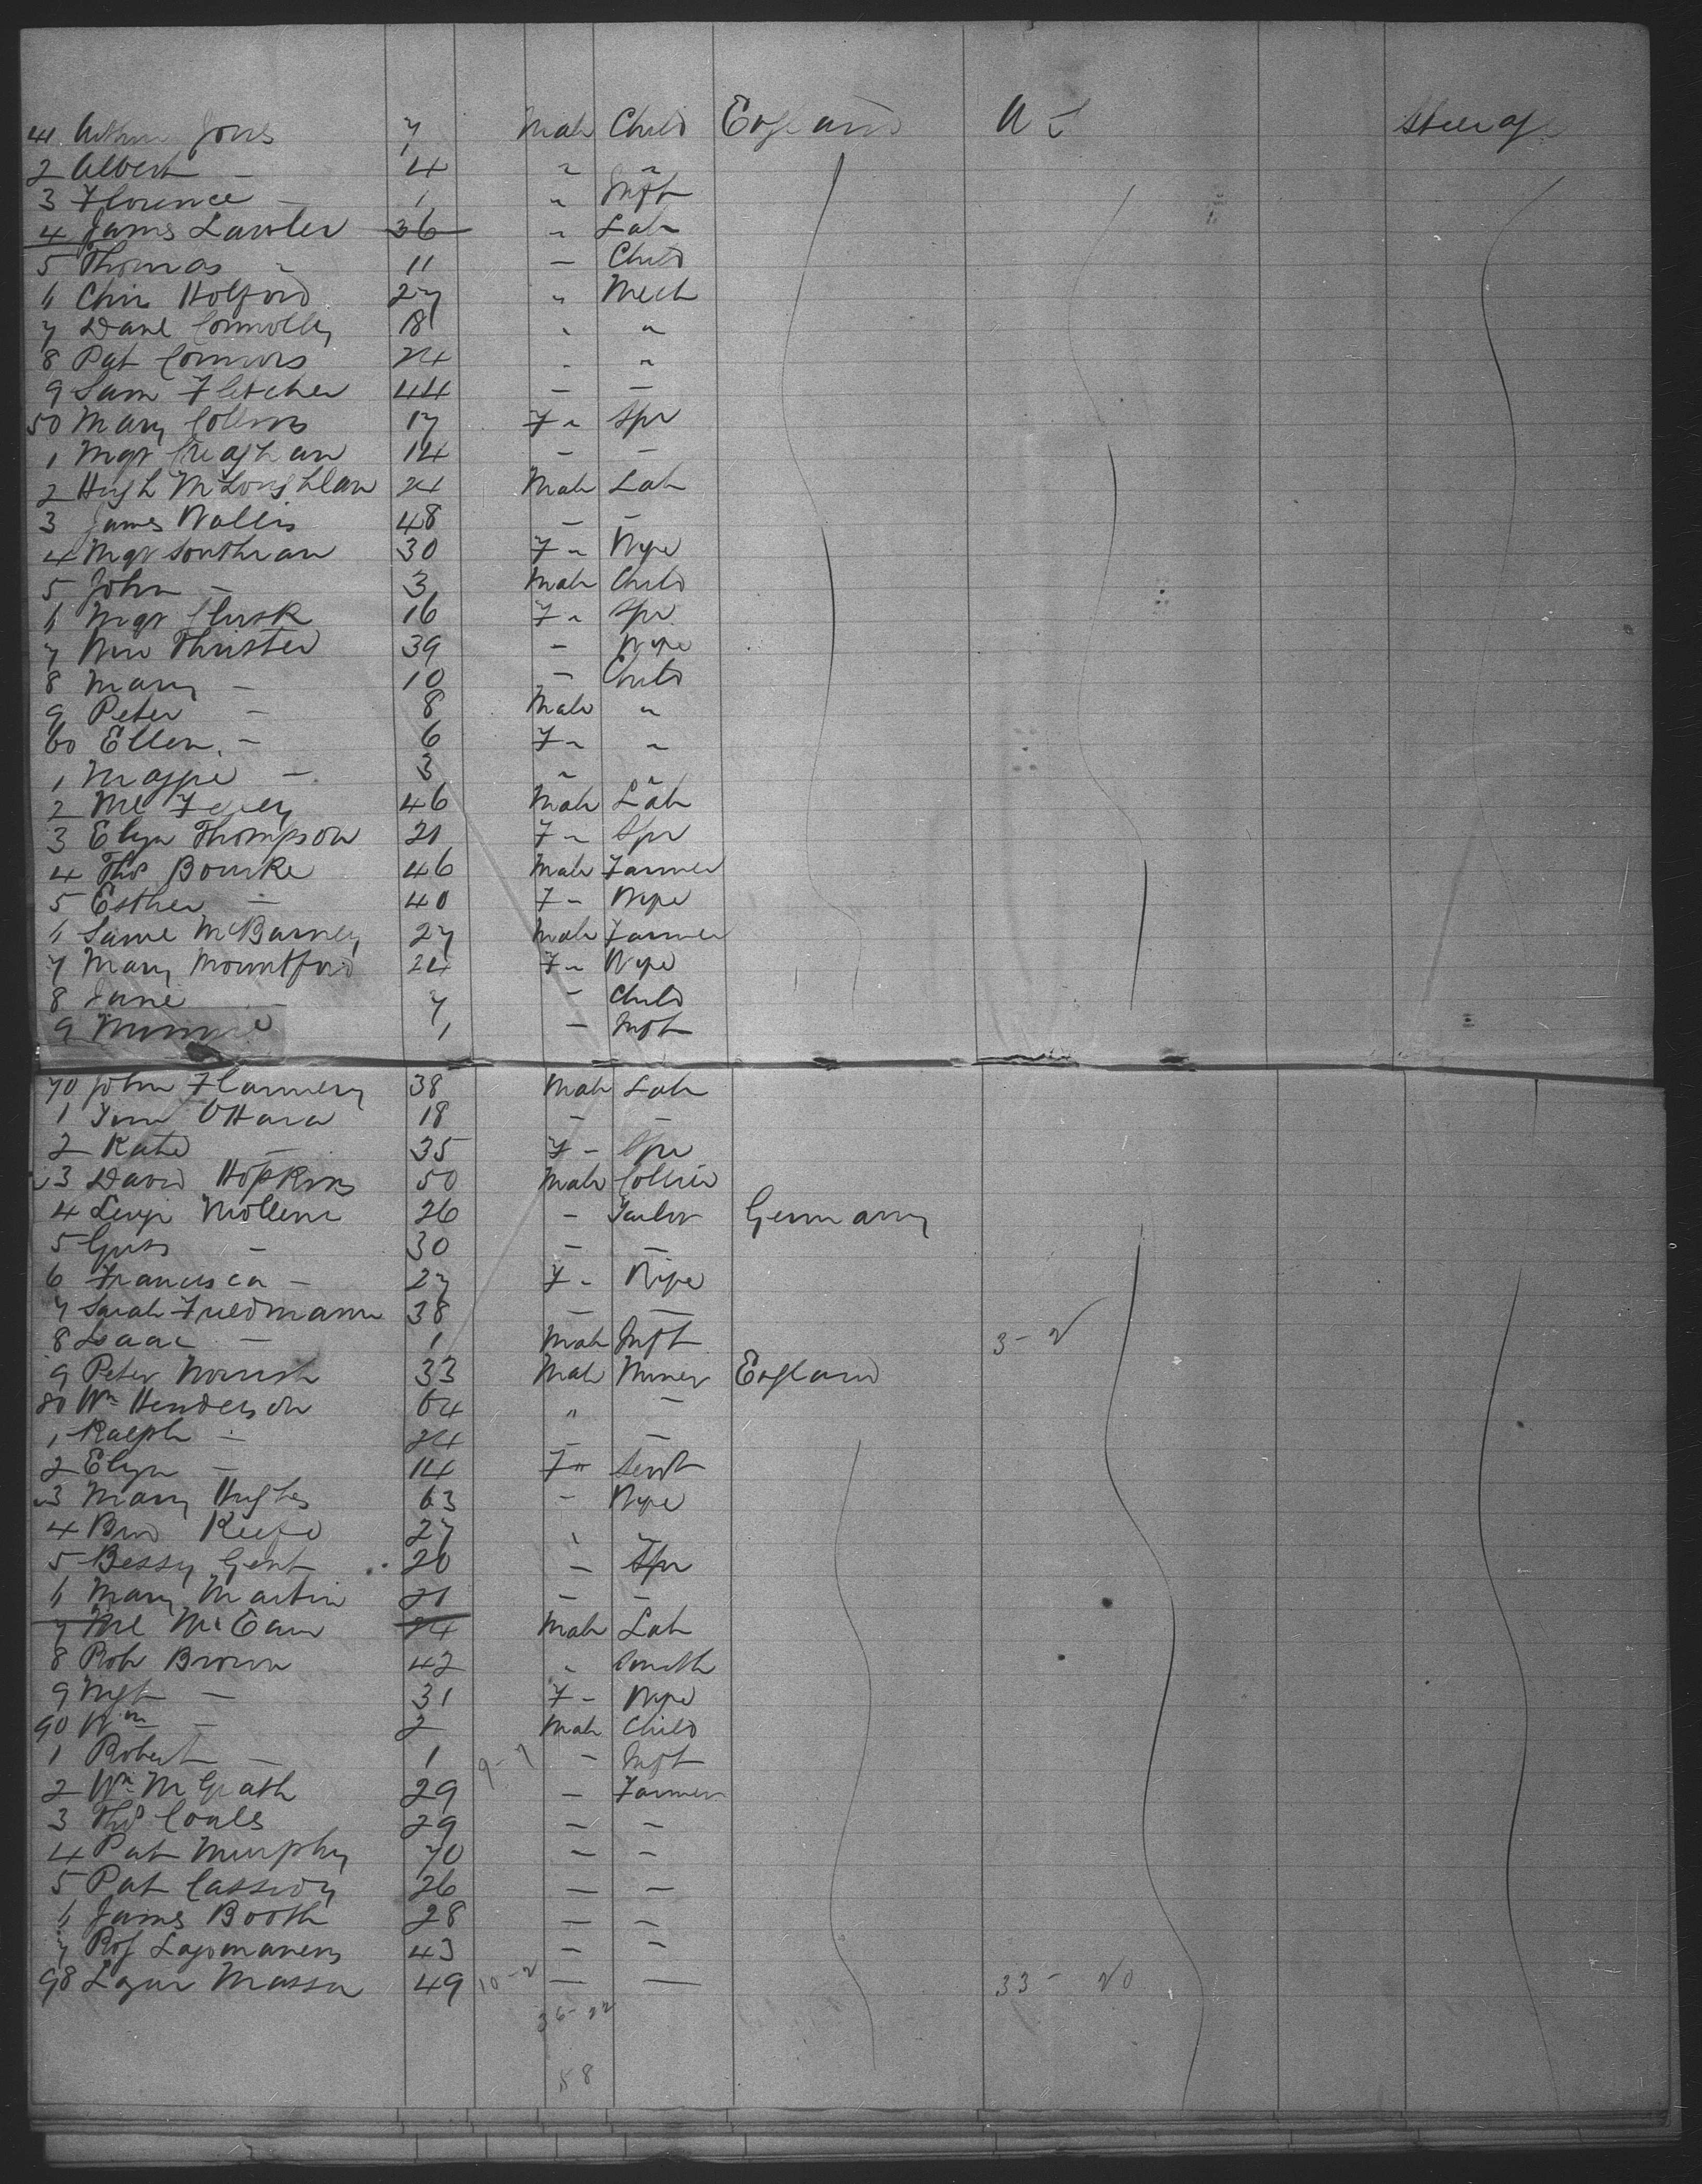 41 Arthur Jones 7 Male Child England U S Steerage
2 Albert - 4 " "
3 Florence - 1 " Inft
4 James Lawler 36 " Lab
5 Thomas " 11 - Child
6 Chris Holford 27 " Mech
7 Danl Connolly 18 " "
8 Pat Connors 24 " "
9 Sam Fletcher 44 - -
50 Mary Collins 17 F " Spr
1 Mgt Creaghan 14 - -
2 Hugh McLoughlan 24 Male Lab
3 James Wallis 48 - -
4 Mgt Southran 30 F " Wife
5 John - 3 Male Child
6 Mgt Clusk 16 F " Spr
7 Thrister 39 - Wife
8 Mary - 10 - Child
9 Peter - 8 Male "
60 Ellen - 6 F " "
1 Maggie - 3 " "
2 Ml 46 Male Lab
3 Eliza Thompson 21 F " Spr
4 Thos Bourke 46 Male Farmer
5 Esther - 40 F " Wife
6 McBarney 27 Male Farmer
7 Mary Mountford 24 F " Wife
8 Jane - 7 - Child
9 Minnie 1 - Inft
70 John Flannery 38 Male Lab
1 Tim OHara 18 - -
2 Kate - 35 F - Spr
3 David Hopkins 50 Male Collier
4 26 - Tailor Germany
5 Guss - 30 - -
6 Francisca - 27 F " Wife
7 Sarah Friedmann 38 - -
8 Isaac - 1 Male Inft 3-2
9 Peter 33 Male Miner England
80 Wm Henderson 64 " -
1 Ralph - 24 - -
2 Eliza - 14 F " Servt
3 Mary Hughes 63 - Wife
4 Keefe 27 " "
5 Bessy Gent 20 - Spr
6 Mary Martin 21 - -
7 Ml 24 Male Lab
8 Robt Brown 42 " Smith
9 Mgt - 31 F - Wife
90 Wm - 2 Male Child
1 Robert - 1 - Inft
2 Wm McGrath 29 - Farmer
3 Thos Coals 29 - -
4 Pat Murphy 70 - -
5 Pat Cassidy 26 - -
6 James Booth 28 - -
7 43 - -
98 Massa 49 10-2 - - 33- 20
36-22
58